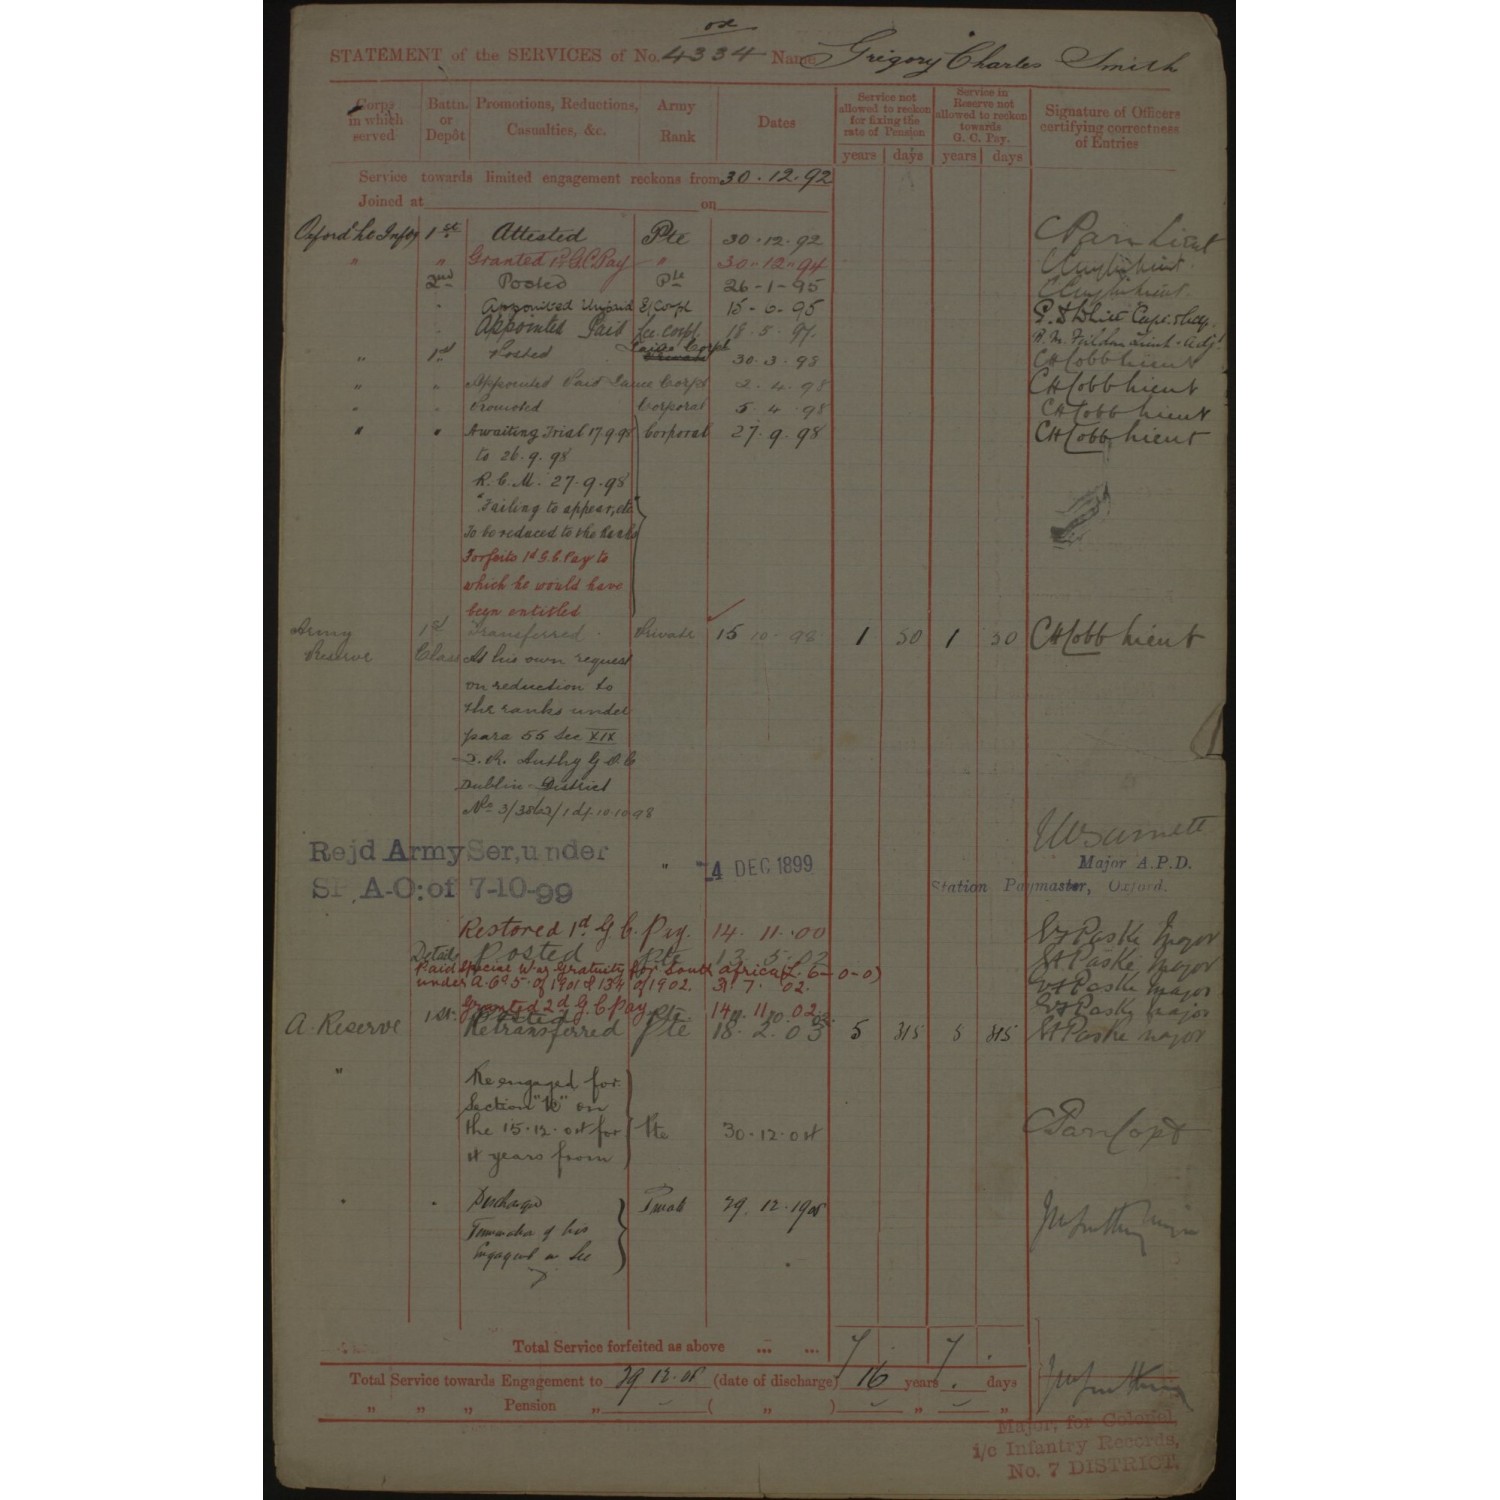 STATEMENT of the SERVICES of No. 4334 Name Gregory Charles Smith
Corps in which served
Battn. or Depôt
Promotions, Reductions, Casualties, &c.
Army Rank
Dates
Service not allowed to reckon for fixing the rate of Pension
Service in Reserve not allowed to reckon towards G. C. Pay.
Signature of Officers certifying correctness of Entries
years days years days
Service towards limited engagement reckons from 30.12.92
Joined at on
Oxford Lt Infty 1st Attested Pte 30.12.92 Lieut
" " Granted 1d G.C. Pay " 30-12-94
2nd Posted Pte 26-1-95
Appointed Unpaid L/Corpl 15-6-95
Appointed Paid Lce Corpl 18.5.97
" 1st Posted Lance Corpl 30.3.98 CH Cobb Lieut
" " Appointed Paid Lance Corpl 2.4.98 CH Cobb Lieut
" " Promoted Corporal 5.4.98 CH Cobb Lieut
" " Awaiting Trial 17.9.98 Corporal 27.9.98 CH Cobb Lieut
to 26.9.98
R.C.M. 27.9.98
"Failing to appear, etc"
To be reduced to the Ranks
Forfeits 1d G.C. Pay to
which he would have
been entitled
Army 1st Transferred Private 15 10 98 1 50 1 50 CH Cobb Lieut
Reserve Class At his own request
on reduction to
the ranks under
para 55 Sec XIX
Authy G.O.C
Dublin District
Rejd Army Ser, under " -4 DEC 1899 Major A.P.D.
SP. A-O: of 7-10-99 Station Paymaster, Oxford.
Restored 1d. G.C. Pay. 14.11.00 Paske Major
Detail Posted Pte 13.5.02 Paske Major
Paid Special War Gratuity for South Africa (£.6-0-0)
under A.O. 5 of 1901 & 134 of 1902. 31.7.02. Paske Major
Granted 2d G.C Pay Pte 14.11.02 Paske Major
A. Reserve 1st. Retransferred Pte 18.2.03 5 315 5 315 Paske Major
" Re engaged for
Section on
the 15.12.04 for Pte 30.12.04
4 years from
Discharge 29.12.1908
Termination of his
Total Service forfeited as above ... ... 7 . 7 .
Total Service towards Engagement to 29.12.08 (date of discharge) 16 years . days
" " " Pension " - ( " ) - " - "
Major, for Colonel,
i/c Infantry Records,
No. 7 DISTRICT.